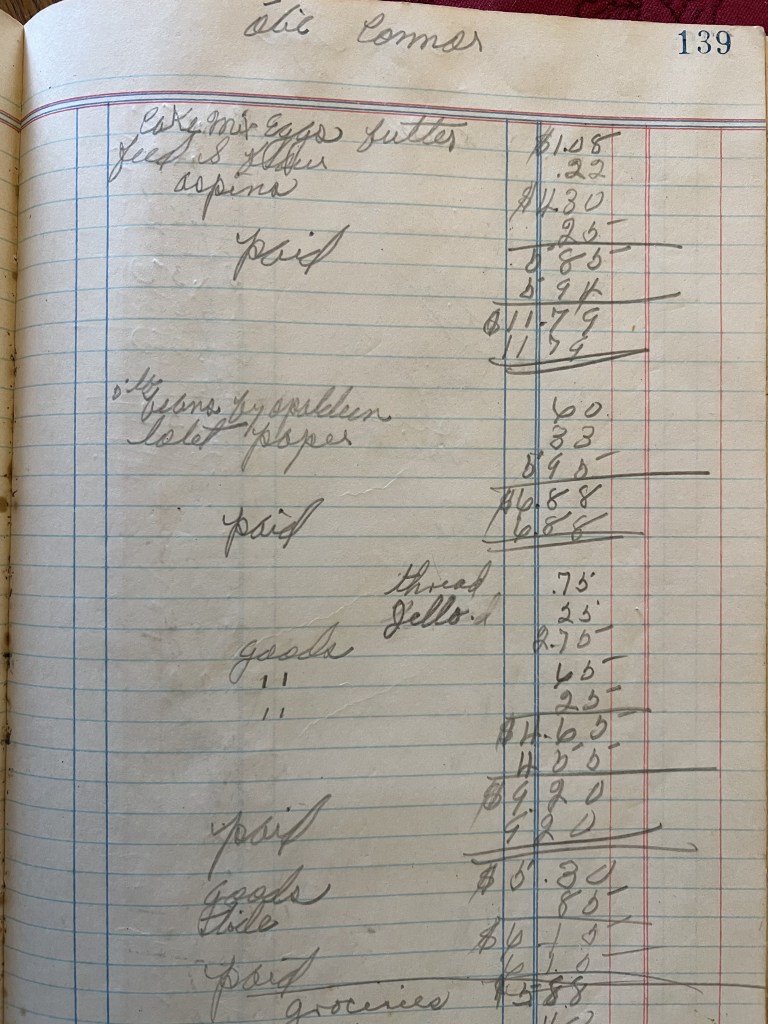 Otic Connor 139
Cake Mix Eggs butter $1.08
feed & flour .22
aspins $4.30
25
paid 5 85
5 94
$11.79
11 79
beans 60
tolet paper 33
5 95
$6.88
paid 6 88
thread .75
Jello 25
goods 2.75
" 65
" 25
$4.65
4 55
$9.20
paid 9 20
goods $5.30
Tide 85
$6 15
paid 6 15
groceries $5 88